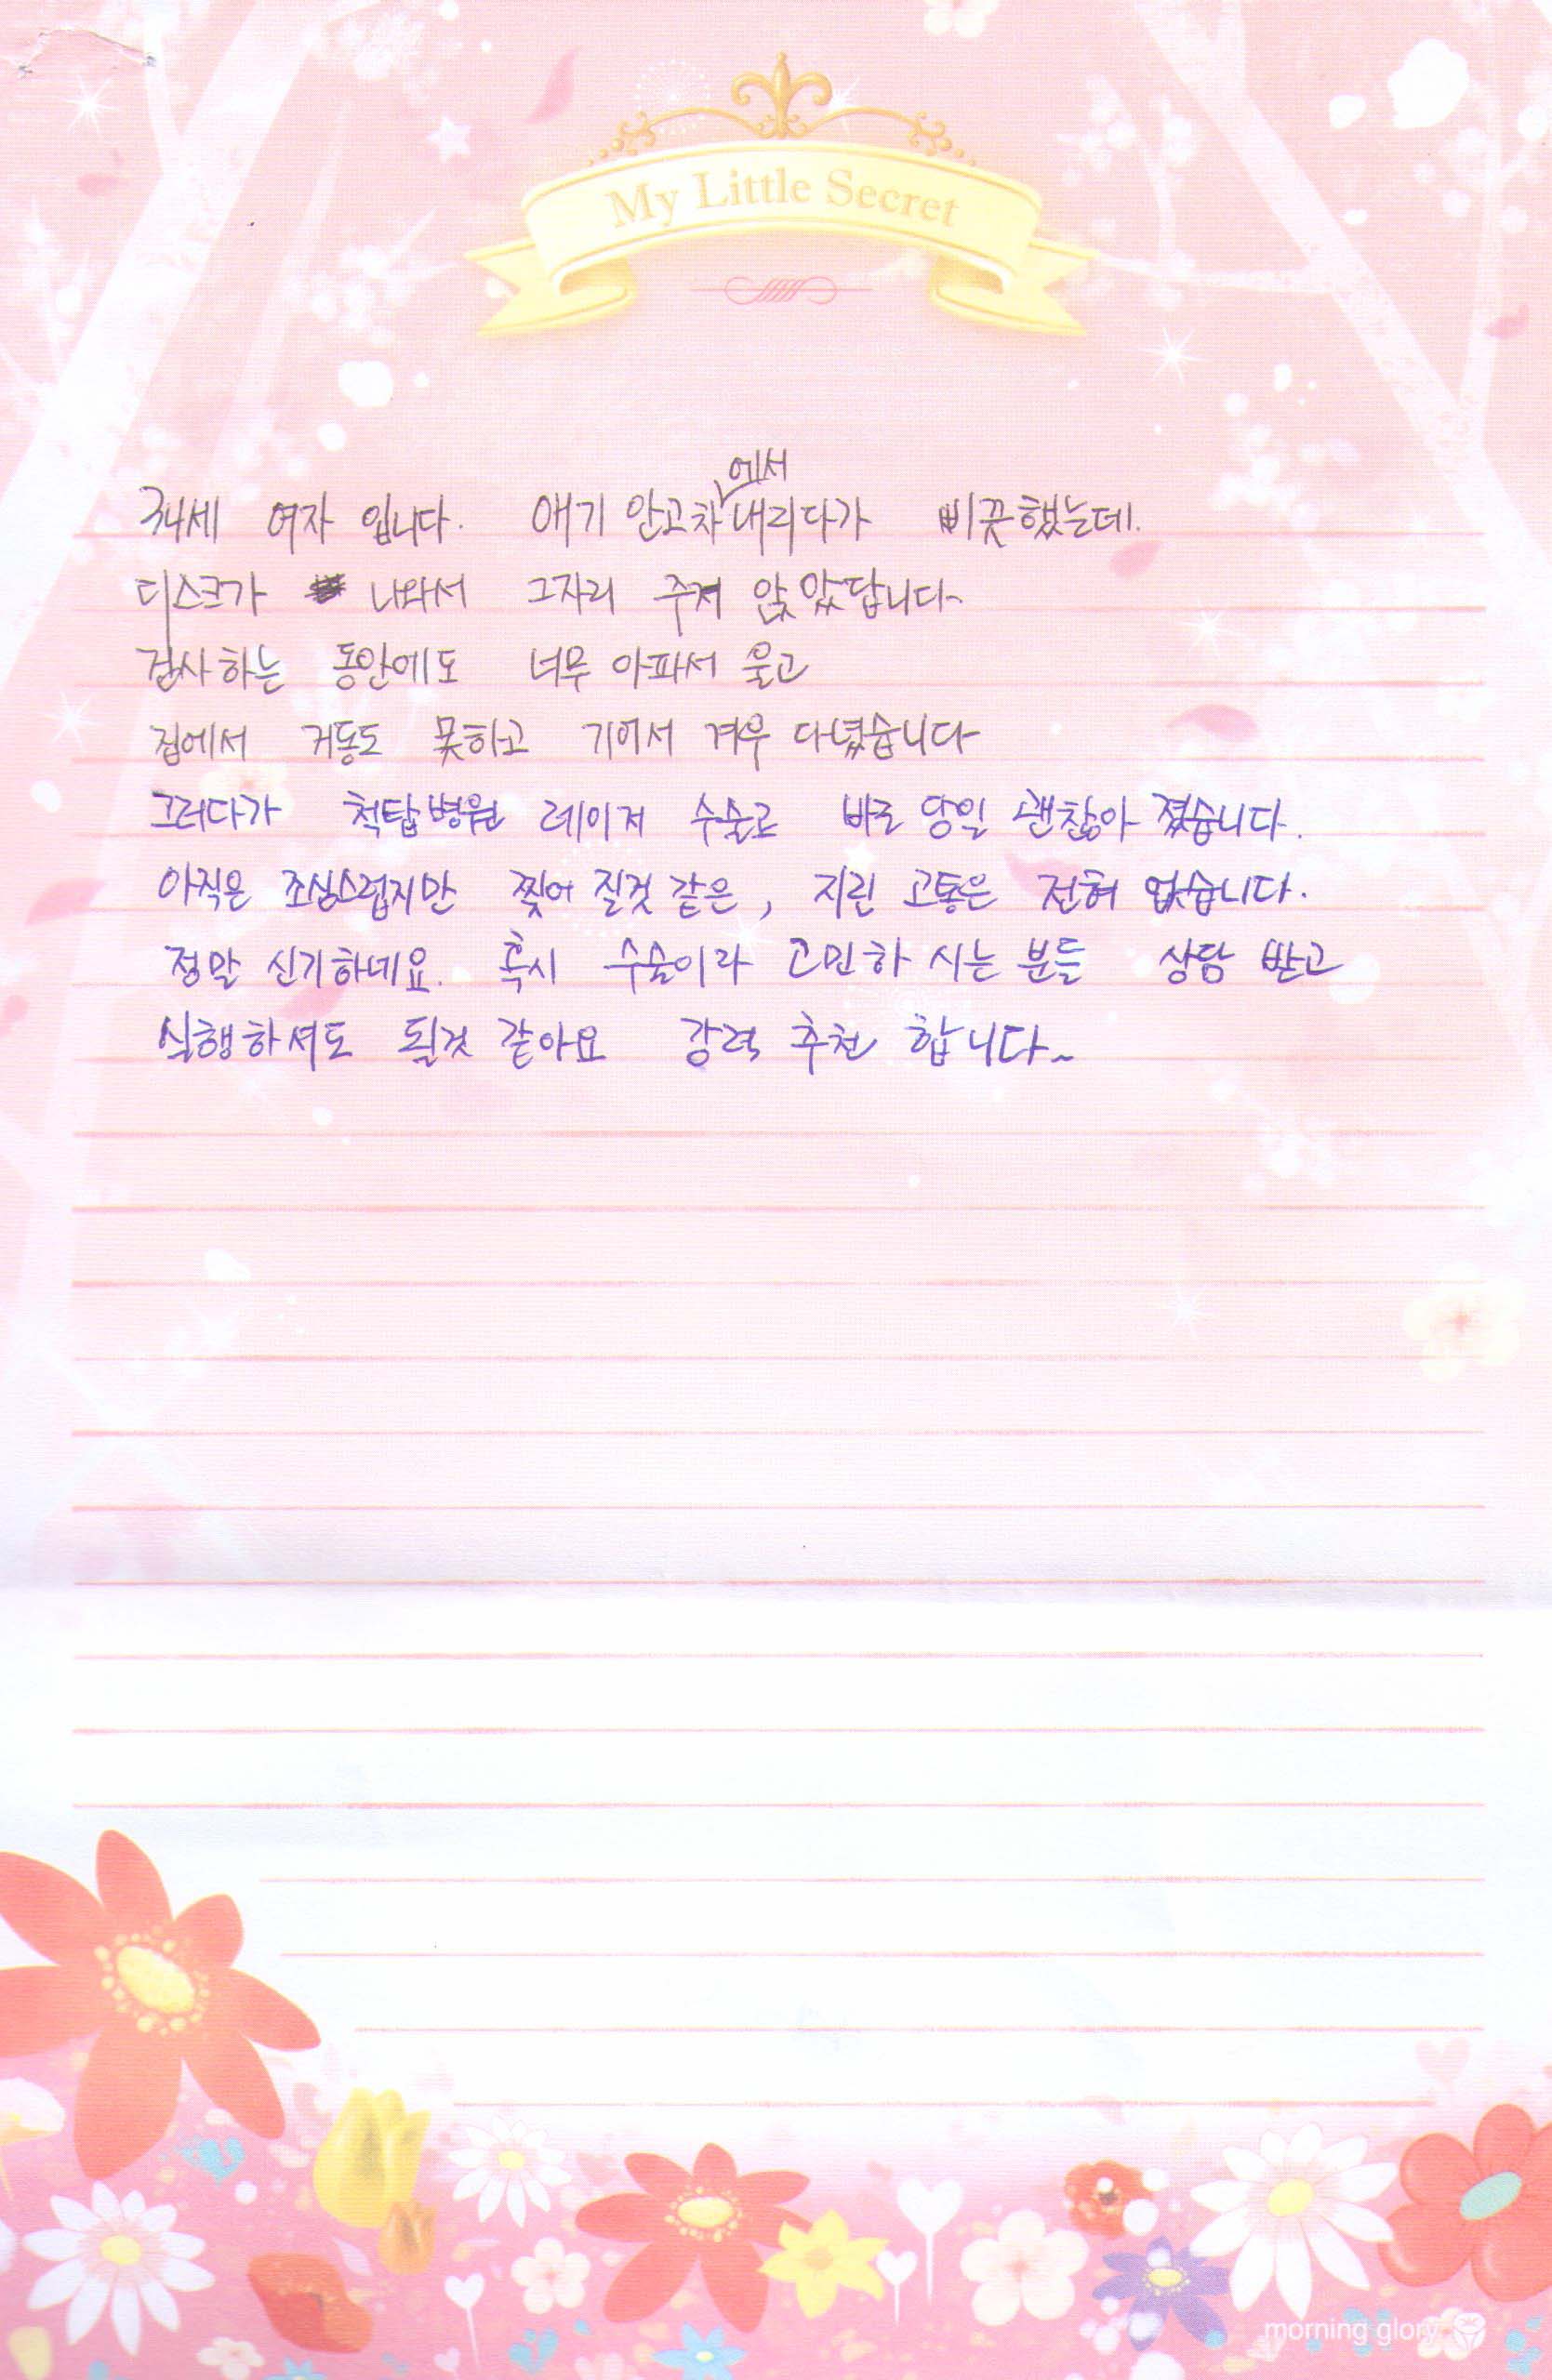 My Little Secret
34세 여자 입니다. 애기 안고차에서 내리다가 삐끗했는데.
디스크가 나와서 그자리 주저 앉았답니다~
검사하는 동안에도 너무 아파서 울고
집에서 거동도 못하고 기어서 겨우 다녔습니다
그러다가 척탑병원 레이저 수술로 바로 당일 괜찮아 졌습니다.
아직은 조심스럽지만 찢어 질것 같은, 지린 고통은 전혀 없습니다.
정말 신기하네요. 혹시 수술이라 고민하 시는 분들 상담 받고
실행하셔도 될것 같아요 강력 추천 합니다~
morning glory